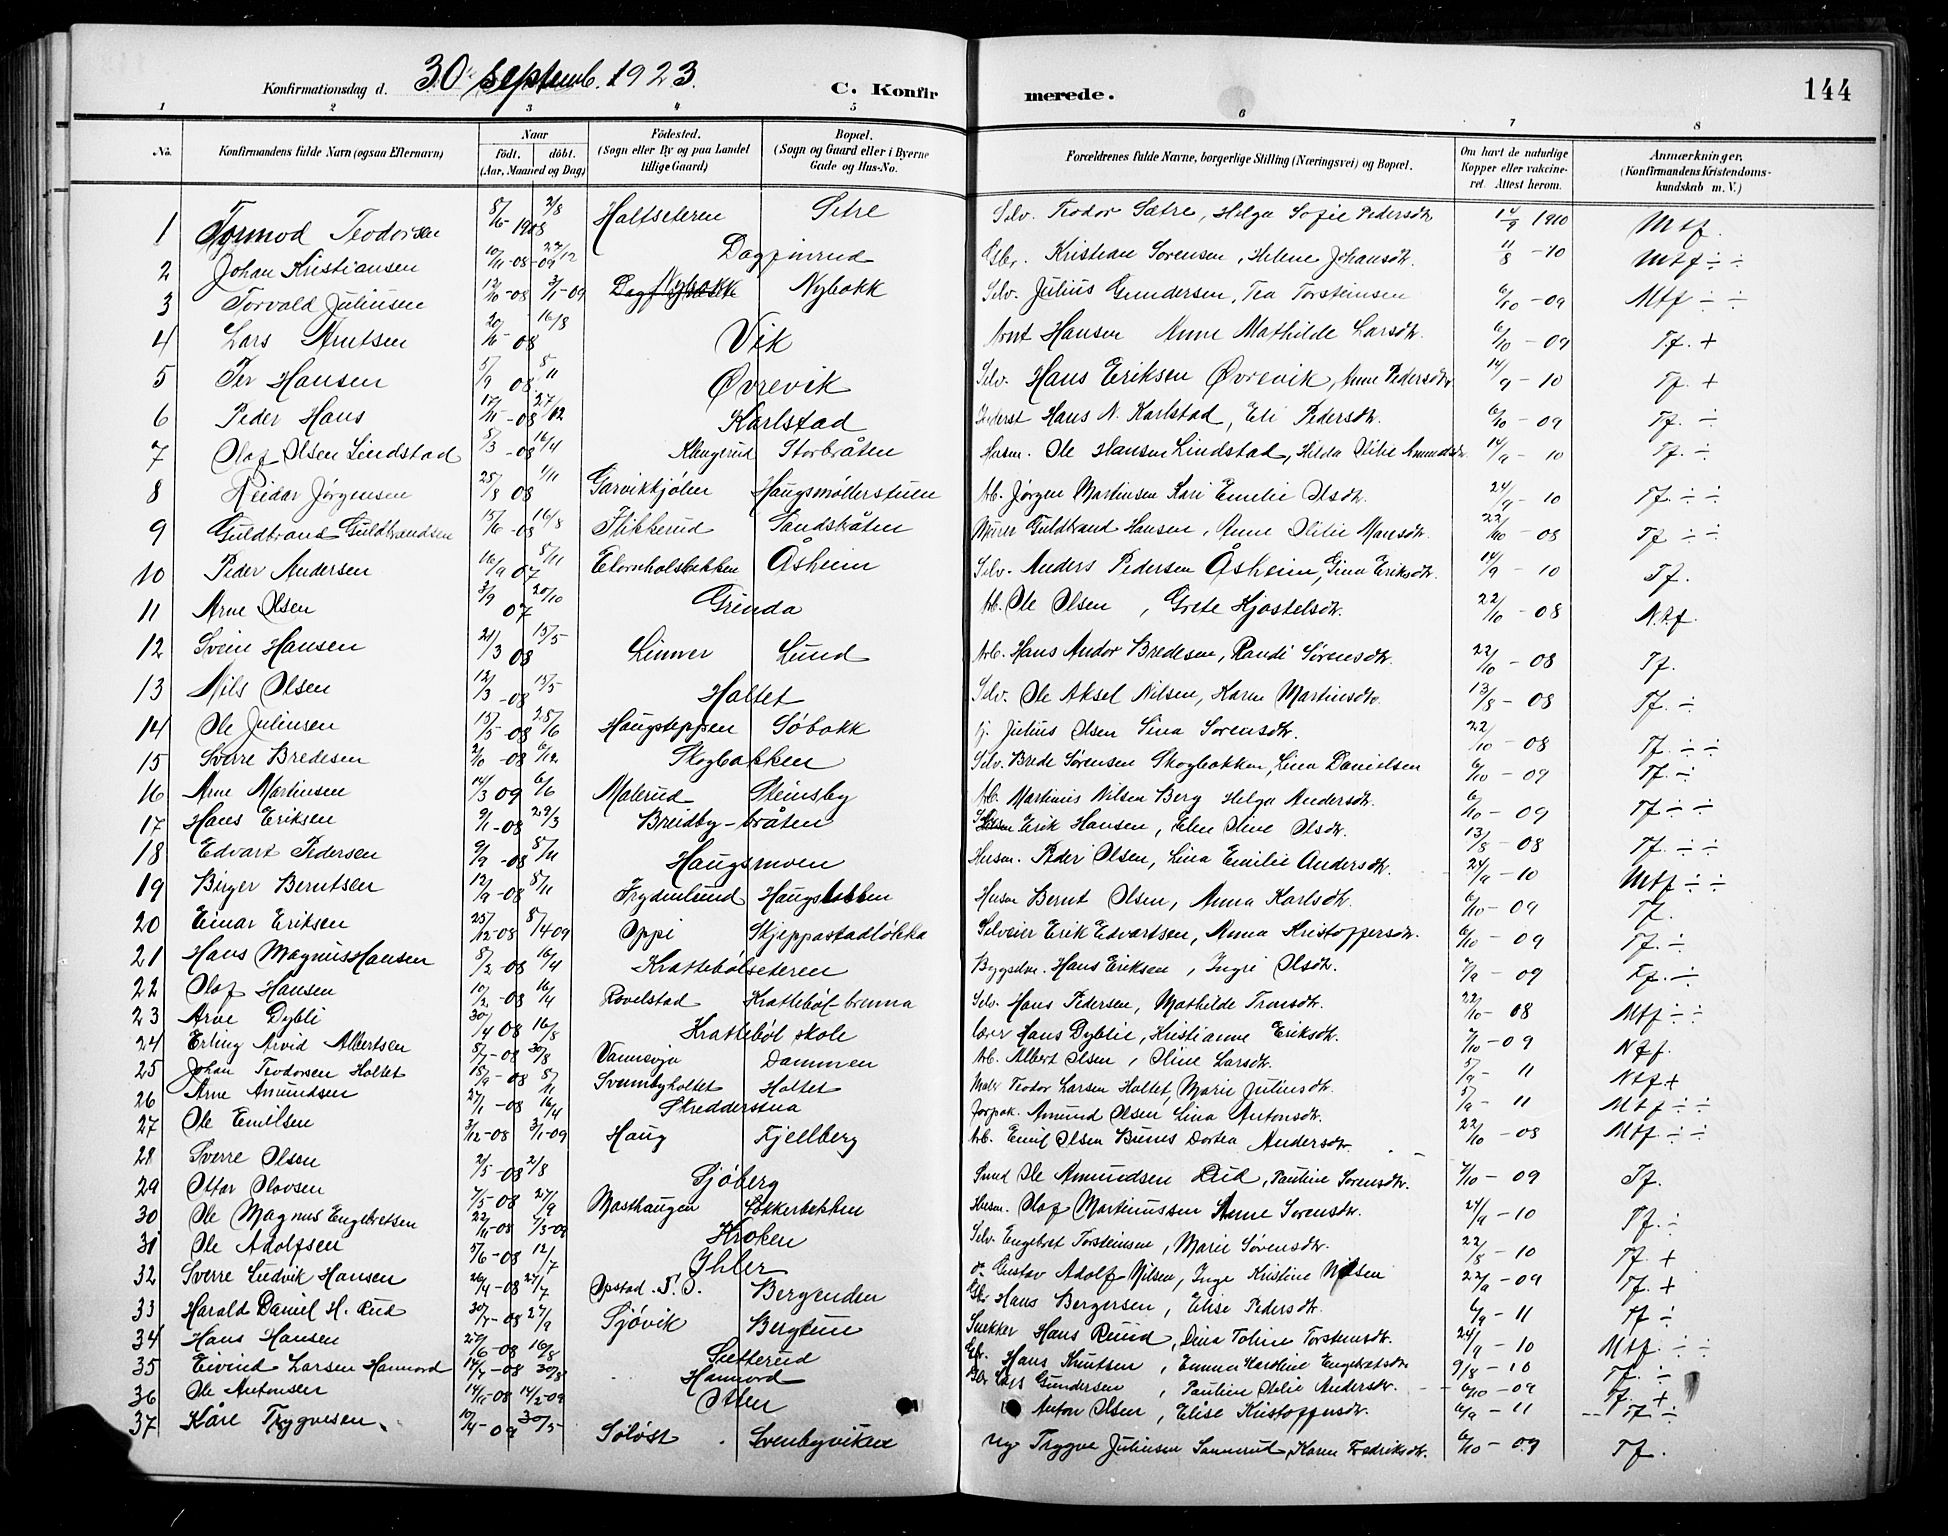 Konfirmationsdag d. 30 septemb. 1923. C. Konfirmerede. 144
1 2 3 4 5 6 7 8
No. Konfirmandens fulde Navn (ogsaa Efternavn) Naar født. døbt. (Aar, Maaned og Dag) Fødested. (Sogn eller By og paa Landet tillige Gaard) Bopæl. (Sogn og Gaard eller i Byerne Gade og Hus-No. Forældrenes fulde Navne, borgerlige Stilling (Næringsvei) og Bopæl. Om havt de naturlige Kopper eller vakcineret. Attest herom. Anmærkninger. (Konfirmandens Kristendomskundskab m. V.)
1 Tormod Teodorsen 1908 2/8 Holtseteren Setre Selv. Teodor Sætre, Helga Sofie Pedersdtr. 14/9 1910 Mtf.
2 Johan Kristiansen 10/11-08 Dagfinrud Gbr. Kristian Sorensen, Helene Johansdtr. 11/8-10 Mtf ÷ ÷
3 Torvald Juliusen 12/10-08 3/1-09 Nybakk Nybakk Selv. Julius Gundersen, Tea Torsteinsen 6/10-09 Mtf ÷ ÷
4 Lars Arntsen 08 16/8 Vik Arnt Hansen Anne Mathilde Larsdtr. 6/10-09 Tf. +
5 Per Hansen 5/9 08 8/11 Øvrevik Selv. Hans Eriksen Øvrevik, Anne Pedersdtr 14/9-10 Tf. +
6 Peder Hans 17/11-08 27/12 Karlstad Hans N. Karlstad, Eli Pedersdtr. 6/10-09 Tf. ÷
7 Olaf Olsen Lindstad 8/3-08 16/4 Klengerud Storbråten Husm. Ole Hansen Lindstad, Hilda Olilie Amundsdtr. 14/9-10 Tf. ÷
8 Reidar Jørgensen 25/8 08 1/11 Garvikkjølen Haugsmøllerstuen Arb. Jørgen Martinsen Kari Emelie Olsdtr. 24/9-10 Tf. ÷ ÷
9 Guldbrand Guldbrandsen 15/6-08 16/8 Flikkerud Sandskåten Murer Guldbrand Hansen, Anne Olilie Hansdtr. 22/10-08 Tf ÷ ÷
10 Peder Andersen 16/9 07 8/11 Ekornholsbekken Åsheim Selv. Anders Pedersen Åsheim, Gina Eriksdtr. 14/9-10 Tf.
11 Arne Olsen 3/9 07 20/10 Grinda Arb. Ole Olsen, Grete Kjøstelsdtr. 22/10-08 N.t.f.
12 Svein Hansen 21/3 08 13/5 Linner Lund Arb. Hans Andor Bredesen, Randi Sørensdtr. 22/10-08 Tf.
13 Nils Olsen 12/3-08 13/5 Holtet Selv. Ole Aksel Nilsen, Karen Martinsdtr 13/8-08 Tf. ÷
14 Ole Juliusen 15/5-08 25/6 Haugseppen Søbakk tj. Julius Olsen Sina Sorensdtr. 22/10-08 Tf. ÷ ÷
15 Sverre Bredesen 2/10-08 6/12 Skogbakken Selv. Brede Sørensen Skogbakken, Lina Danielsen 6/10-09 Tf. ÷
16 Arne Martinsen 14/3 09 6/6 Malerud Steinsby Arb. Martinius Nilsen Berg Helga Andersdtr. 6/10-09 Tf ÷ ÷
17 Hans Eriksen 9/1-08 29/3 Breidby-bråten Erik Hansen, Elen Oline Olsdtr. 13/8-08 Tf. ÷ ÷
18 Edvart Pedersen 9/9-08 8/11 Haugsmoen Husm. Peder Olsen, Lina Emilie Andersdtr. 24/9-10 Mtf ÷ ÷
19 Birger Berntsen 12/9-08 8/11 Frydenlund Haugsbakken Husm Bernt Olsen, Anna Karlsdtr. 6/10-09 Tf.
20 Einar Eriksen 25/12-08 8/4 09 Oppi Skjeppestadløkka Selveier Erik Edvartsen, Anna Kristoffersdtr. 6/10-09 Tf. ÷
21 Hans Magnus Hansen 8/2-08 16/4 Krattebølseteren Byggselv. Hans Eriksen, Ingri Olsdtr. 9/9-09 Tf. ÷
22 Olaf Hansen 10/2-08 16/4 Rovelstad Krattebøl brenna Selv. Hans Pedersen, Mathilde Tronsdtr. 22/10-08 Mtf ÷ ÷
23 Arne Dybli 30/4 08 16/8 Krattebøl skole Lærer Hans Dyblie, Kristianne Eriksdtr. 9/10-09 Ntf.
24 Erling Arvid Albertsen 5/7-08 30/8 Vannsøja Dammen Arb. Albert Olsen, Oline Larsdtr. 5/9-11 Ntf +
25 Johan Teodorsen Holtet 15/9-08 8/11 Svenbyholtet Holtet Maler Teodor Larsen Holtet, Marie Juliusdtr. 5/9-11 Mtf ÷ ÷
26 Arne Amundsen 27/1-08 16/4 Skredderstua Forpak. Amund Olsen Lina Antonsdtr. 22/10-08 Mtf ÷ ÷
27 Ole Emilsen 3/12-08 3/1-09 Haug Fjellberg Arb. Emil Olsen Bunes Dortea Andersdtr.
28 Sverre Olsen 2/5-08 2/8 Sjøberg Smed Ole Amundsen Rud, Pauline Sorensdtr. 9/10-09 Tf.
29 Ottar Olavsen 7/5-08 27/9 Masthaugen Løkkerbekken Husm. Olaf Martinussen Anne Sorensdtr. 24/9-10 Tf. ÷
30 Ole Magnus Engebretsen 22/11-08 Kroken Selv. Engebret Torsteinsen, Marie Sørensdtr. 22/8-10 Tf. +
31 Ole Adolfsen 5/6-08 12/7 Ihler Gustav Adolf Nilsen, Inge Kristine Nilsen 22/9-09 Tf. +
32 Sverre Ludvik Hansen 26/4-08 Opstad. Bergenden Hans Bergersen, Elise Pedersdtr. 6/9-11 Tf ÷
33 Harald Daniel H. Rud 08 27/9 Sjøvik Bergtun Snekker Hans Ruud, Dina Toline Torsteinsdtr. 24/9-10 Mtf. ÷ ÷
34 Hans Hansen 27/6-08 16/8 Sætterud Gbr. Hans Knutsen, Emma Karoline Engebretsdtr 9/8-10 Tf. ÷
35 Eivind Larsen Hannord 14/7-08 30/8 Hannord Gbr Lars Gundersen, Pauline Olilie Andersdtr. 6/10-09 Tf. +
36 Ole Antonsen 14/11-08 14/2-09 Olsen Anton Olsen, Elise Kristoffersdtr. 6/9-11 Tf ÷
37 Kåre Trygvesen 10/4-09 30/5 Søløst Svenbyviken Trygve Juliusen Sannerud, Karen Fredriksdtr. 6/10-09 Tf.